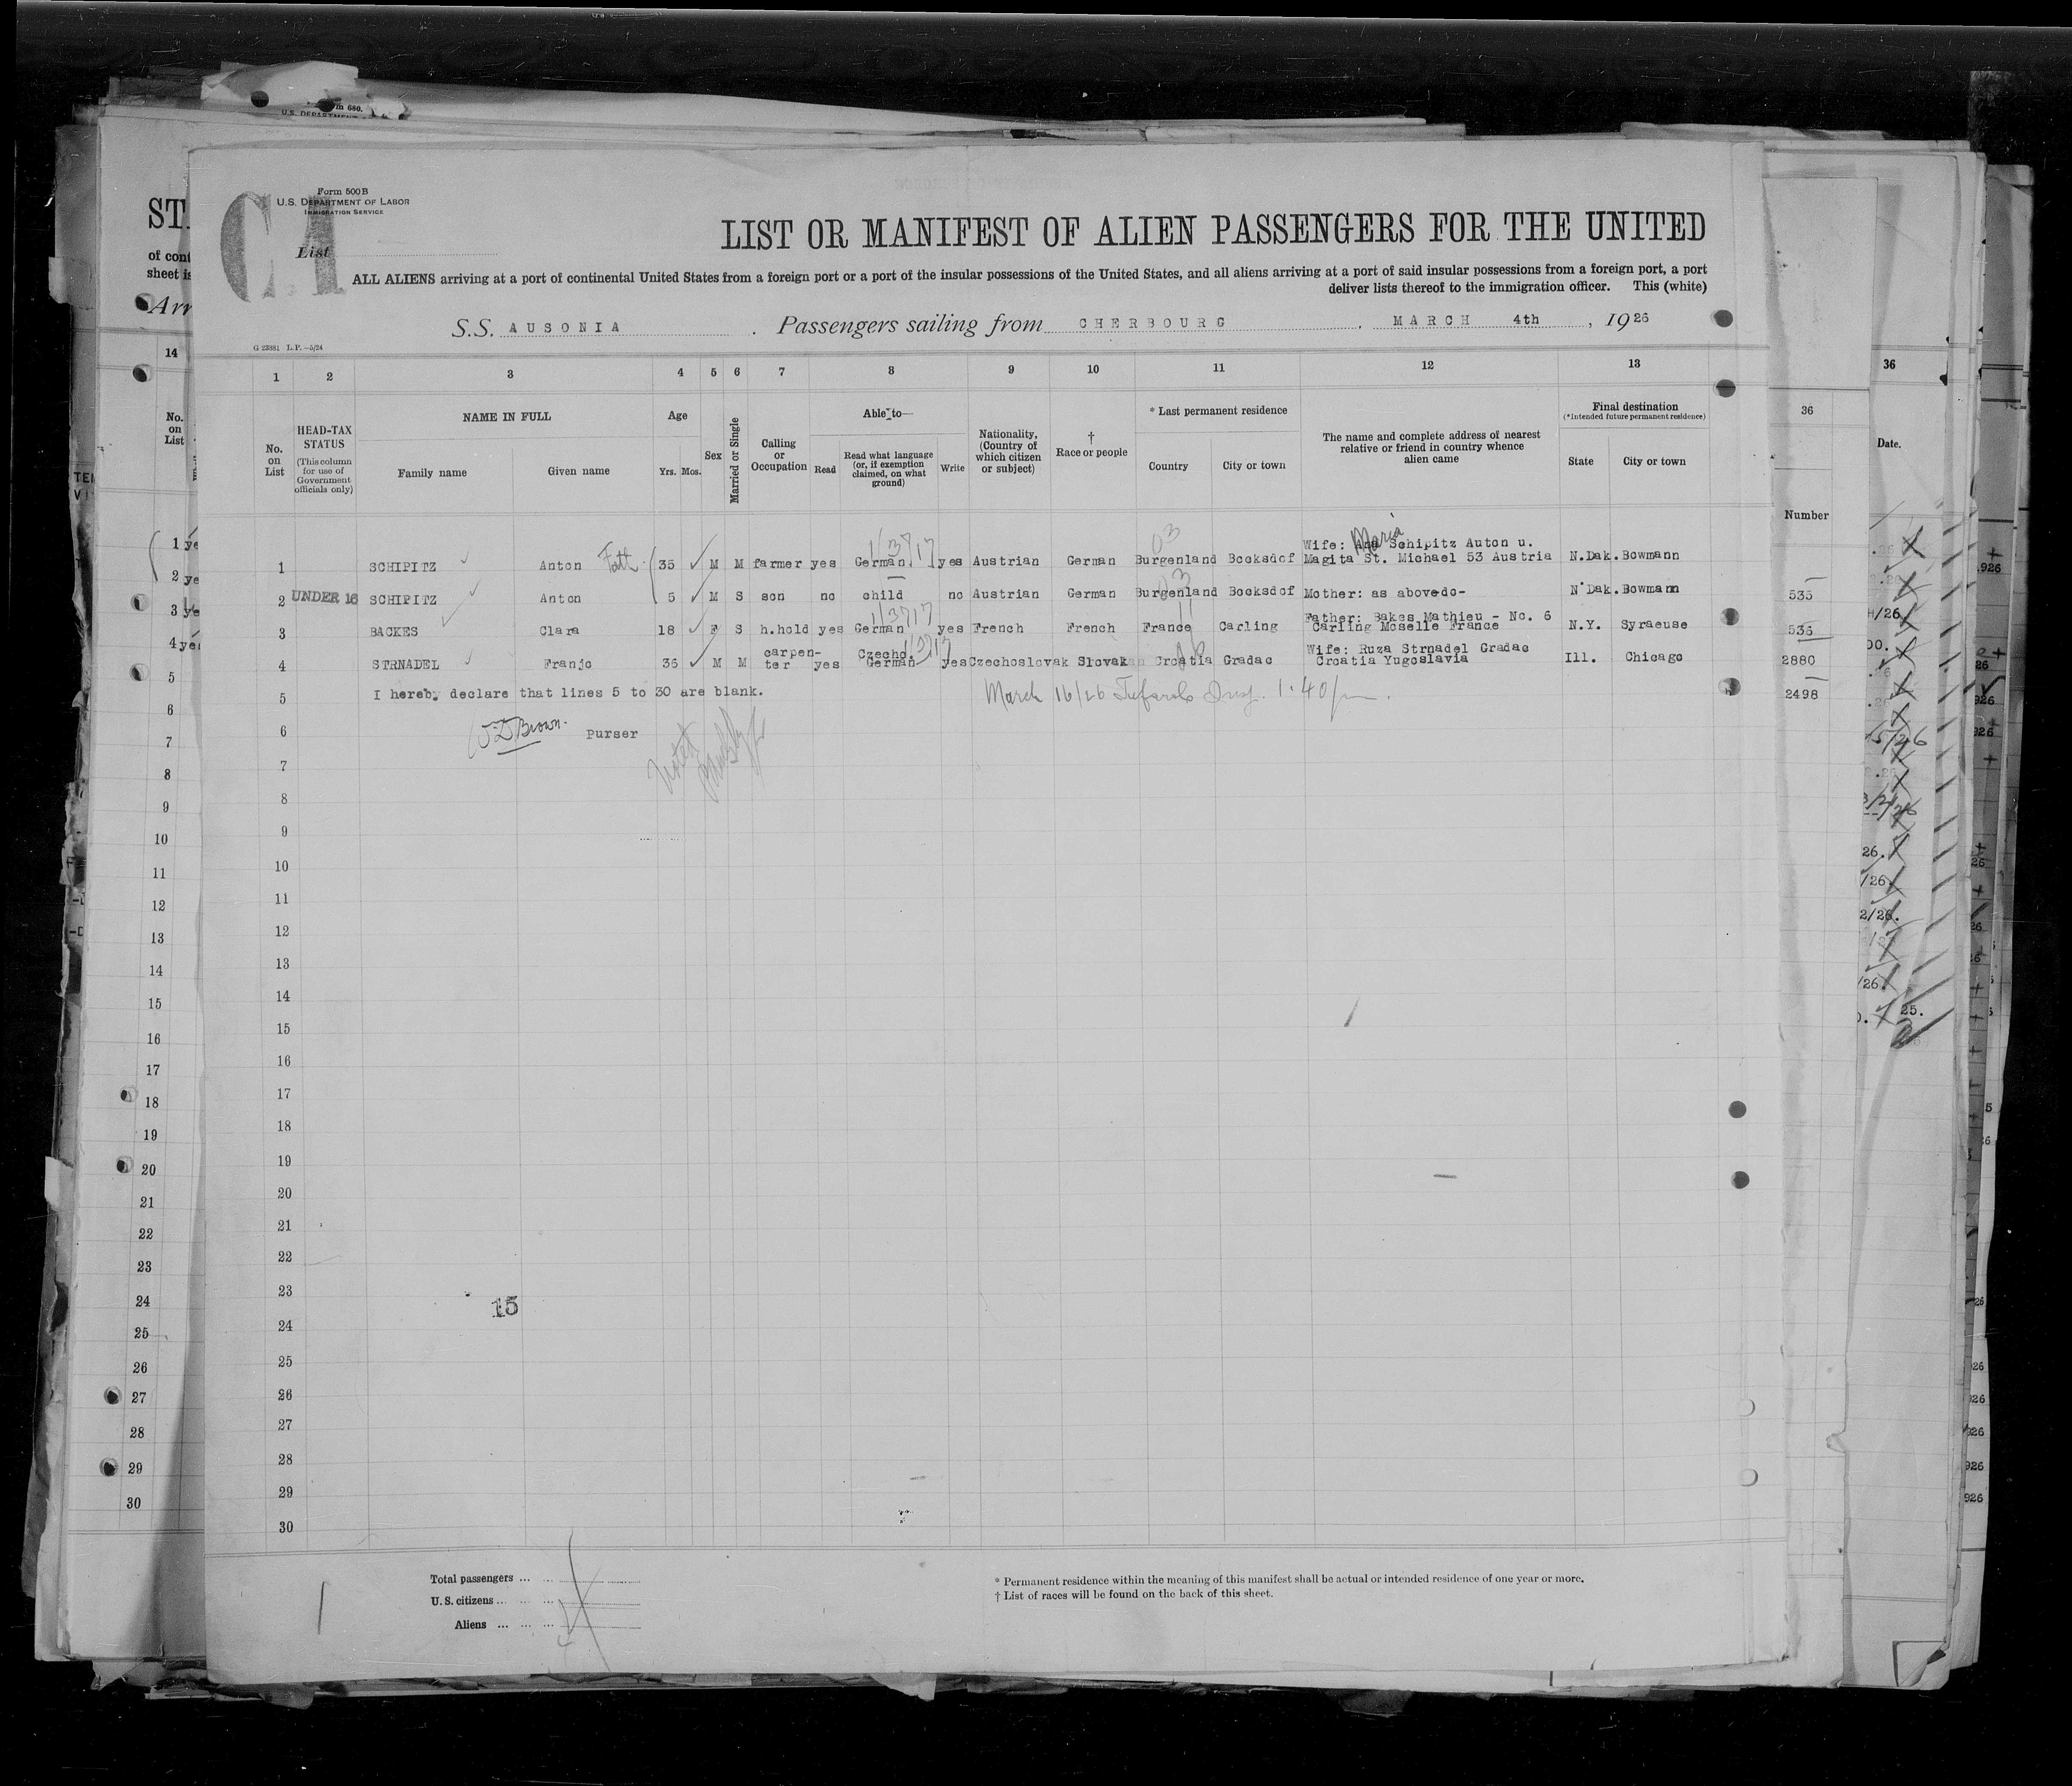 m 680.
U.S. DEPARTMENT
Form 500 B
U.S. DEPARTMENT OF LABOR
IMMIGRATION SERVICE
CA
List
LIST OR MANIFEST OF ALIEN PASSENGERS FOR THE UNITED
ALL ALIENS arriving at a port of continental United States from a foreign port or a port of the insular possessions of the United States, and all aliens arriving at a port of said insular possessions from a foreign port, a port
deliver lists thereof to the immigration officer. This (white)
S.S. AUSONIA. Passengers sailing from CHERBOURG, MARCH 4th, 1926
G 23881 L.P.—5/24
1 2 3 4 5 6 7 8 9 10 11 12 13
No. on List
HEAD-TAX STATUS
(This column for use of Government officials only)
NAME IN FULL
Family name Given name
Age
Yrs. Mos.
Sex
Married or Single
Calling or Occupation
Able to—
Read
Read what language (or, if exemption claimed, on what ground)
Write
Nationality, (Country of which citizen or subject)
† Race or people
* Last permanent residence
Country City or town
The name and complete address of nearest relative or friend in country whence alien came
Final destination
(*Intended future permanent residence)
State City or town
1 SCHIPITZ Anton Fath 35 M M farmer yes German yes Austrian German Burgenland Bocksdof Wife: Ana Maria Schipitz Auton u. Magita St. Michael 53 Austria N.Dak. Bowmann
2 UNDER 16 SCHIPITZ Anton 5 M S son no child no Austrian German Burgenland Bocksdof Mother: as above-do- N Dak. Bowmann
3 BACKES Clara 18 F S h.hold yes German yes French French France Carling Father: Bakes Mathieu - No. 6 Carling Moselle France N.Y. Syraeuse
4 STRNADEL Franjo 36 M M carpen-ter yes Czecho. German yes Czechoslovak Slovak Croatia Gradac Wife: Ruza Strnadel Gradac Croatia Yugoslavia Ill. Chicago
5 I hereby declare that lines 5 to 30 are blank.
March 16/26 Insp. 1.40 pm.
6 Brown. Purser
7
8
9
10
11
12
13
14
15
16
17
18
19
20
21
22
23
15
24
25
26
27
28
29
30
Total passengers
U.S. citizens
Aliens
* Permanent residence within the meaning of this manifest shall be actual or intended residence of one year or more.
† List of races will be found on the back of this sheet.
ST
of cont
sheet is
Arr
14
No. on List
1 ye
2 ye
3 ye
4 yes
5
6
7
8
9
10
11
12
13
14
15
16
17
18
19
20
21
22
23
24
25
26
27
28
29
30
36
Number
535
536
2880
2498
36
Date.